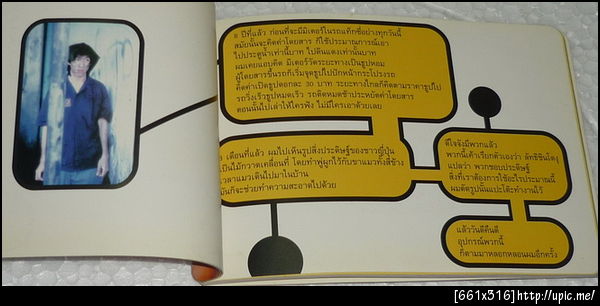 ๘ ปีที่แล้ว ก่อนที่จะมีมิเตอร์ในรถแท็กซี่อย่างทุกวันนี้
สมัยนั้นจะคิดค่าโดยสาร ก็ใช้ประมาณการณ์เอา
ไปประตูน้ำเท่านี้บาท ไปดินแดงเท่านั้นบาท
ผมเคยแอบคิด มิเตอร์วัดระยะทางเป็นธูปหอม
ผู้โดยสารขึ้นรถก็เริ่มจุดธูปไปปักหน้ากระโปรงรถ
คิดค่าเปิดธูปดอกละ ๖๐ บาท ระยะทางไกลก็คิดตามราคาธูปไป
รถวิ่งเร็วธูปหมดเร็ว รถติดหมดช้าประหยัดค่าโดยสาร
ตอนนั้นไปเล่าให้ใครฟัง ไม่มีใครเอาด้วยเลย
เดือนที่แล้ว ผมไปเห็นรูปสิ่งประดิษฐ์ของชาวญี่ปุ่น
เป็นไม้กวาดเคลื่อนที่ โดยทำพู่ผูกไว้กับขาแมวทั้งสี่ข้าง
เวลาแมวเดินไปมาในบ้าน
มันก็จะช่วยทำความสะอาดไปด้วย
ดีใจจังมีพวกแล้ว
พวกนี้เค้าเรียกตัวเองว่า ลัทธิชินโดงุ
แปลว่า พวกชอบประดิษฐ์
สิ่งที่เราต้องการใช้อะไรประมาณนี้
ผมตัดรูปนั้นแปะโต๊ะทำงานไว้
แล้ววันดีคืนดี
อุปกรณ์พวกนี้
ก็ตามมาหลอกหลอนผมอีกครั้ง
[661x316]http://upic.me/